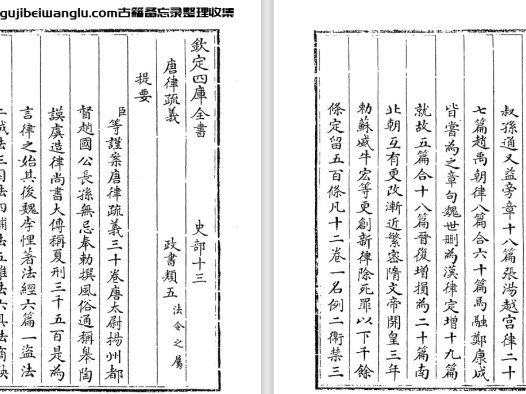 gujibeiwanglu.com古籍备忘录整理收集
欽定四庫全書　史部十三
唐律疏義　政書類五法令之屬
提要
臣等謹案唐律疏義三十卷唐太尉揚州都
督趙國公長孫無忌奉勅撰風俗通稱皋陶
謨虞造律尚書大傳稱夏刑三千五百是為
言律之始其後魏李悝著法經六篇一盜法
二賊法三囚法四捕法五雜法六具法商鞅
叔孫通又益旁章十八篇張湯越宫律二十
七篇趙禹朝律八篇合六十篇馬融鄭康成
皆嘗為之章句魏世刪為漢律定增十九篇
就故五篇合十八篇晉復增損為二十篇南
北朝互有更改漸近繁密隋文帝開皇三年
勅蘇威牛宏等更創新律除死罪以下千餘
條定留五百條凡十二卷一名例二衛禁三